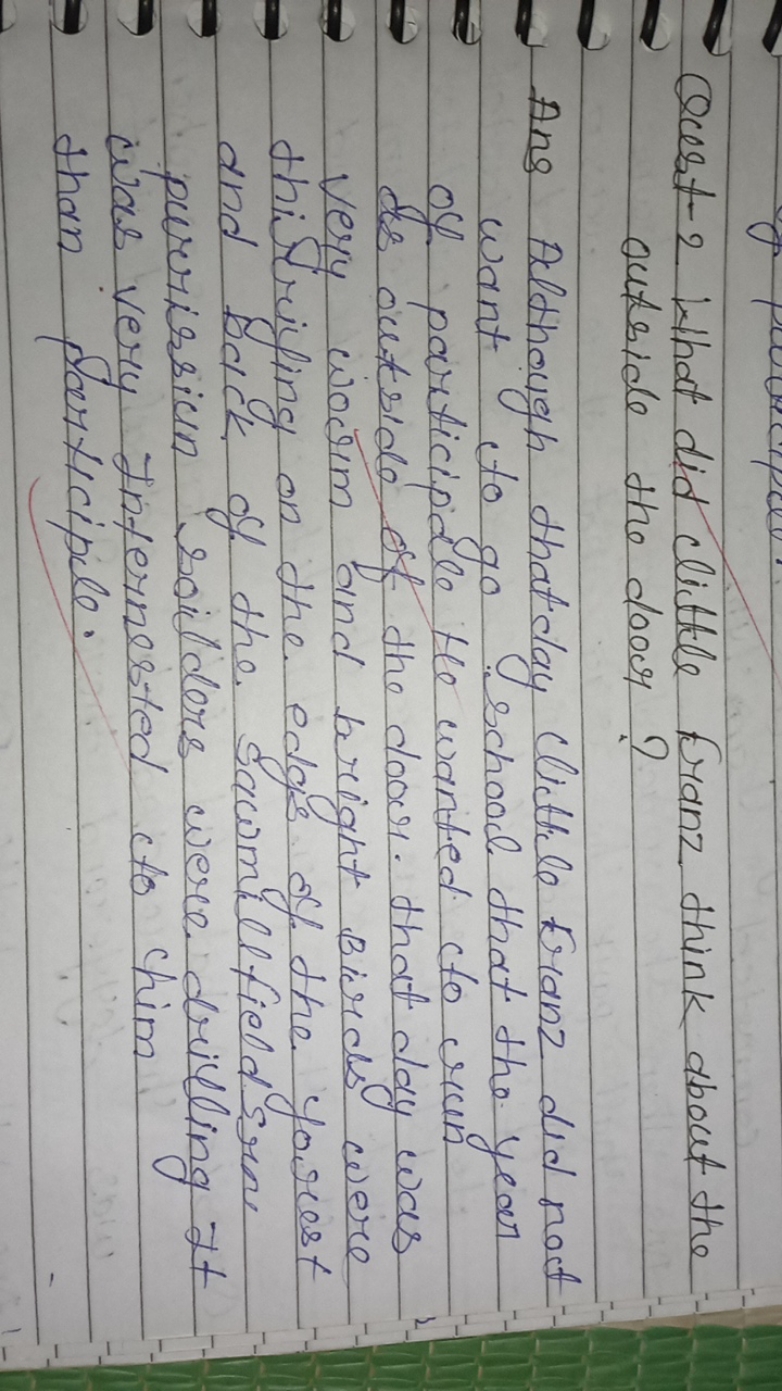 Quest-2 What did little franz think about the
outside the door?
Ans Although that day little franz did not
want to go school that the year
of participale He wanted to run
as outside of the door. that day was
very warm and bright Birds were
on the edge of the yorest
and Back of the Sawmill field
purrissiun soildors were drilling It
was very Infernested to him
than participle.